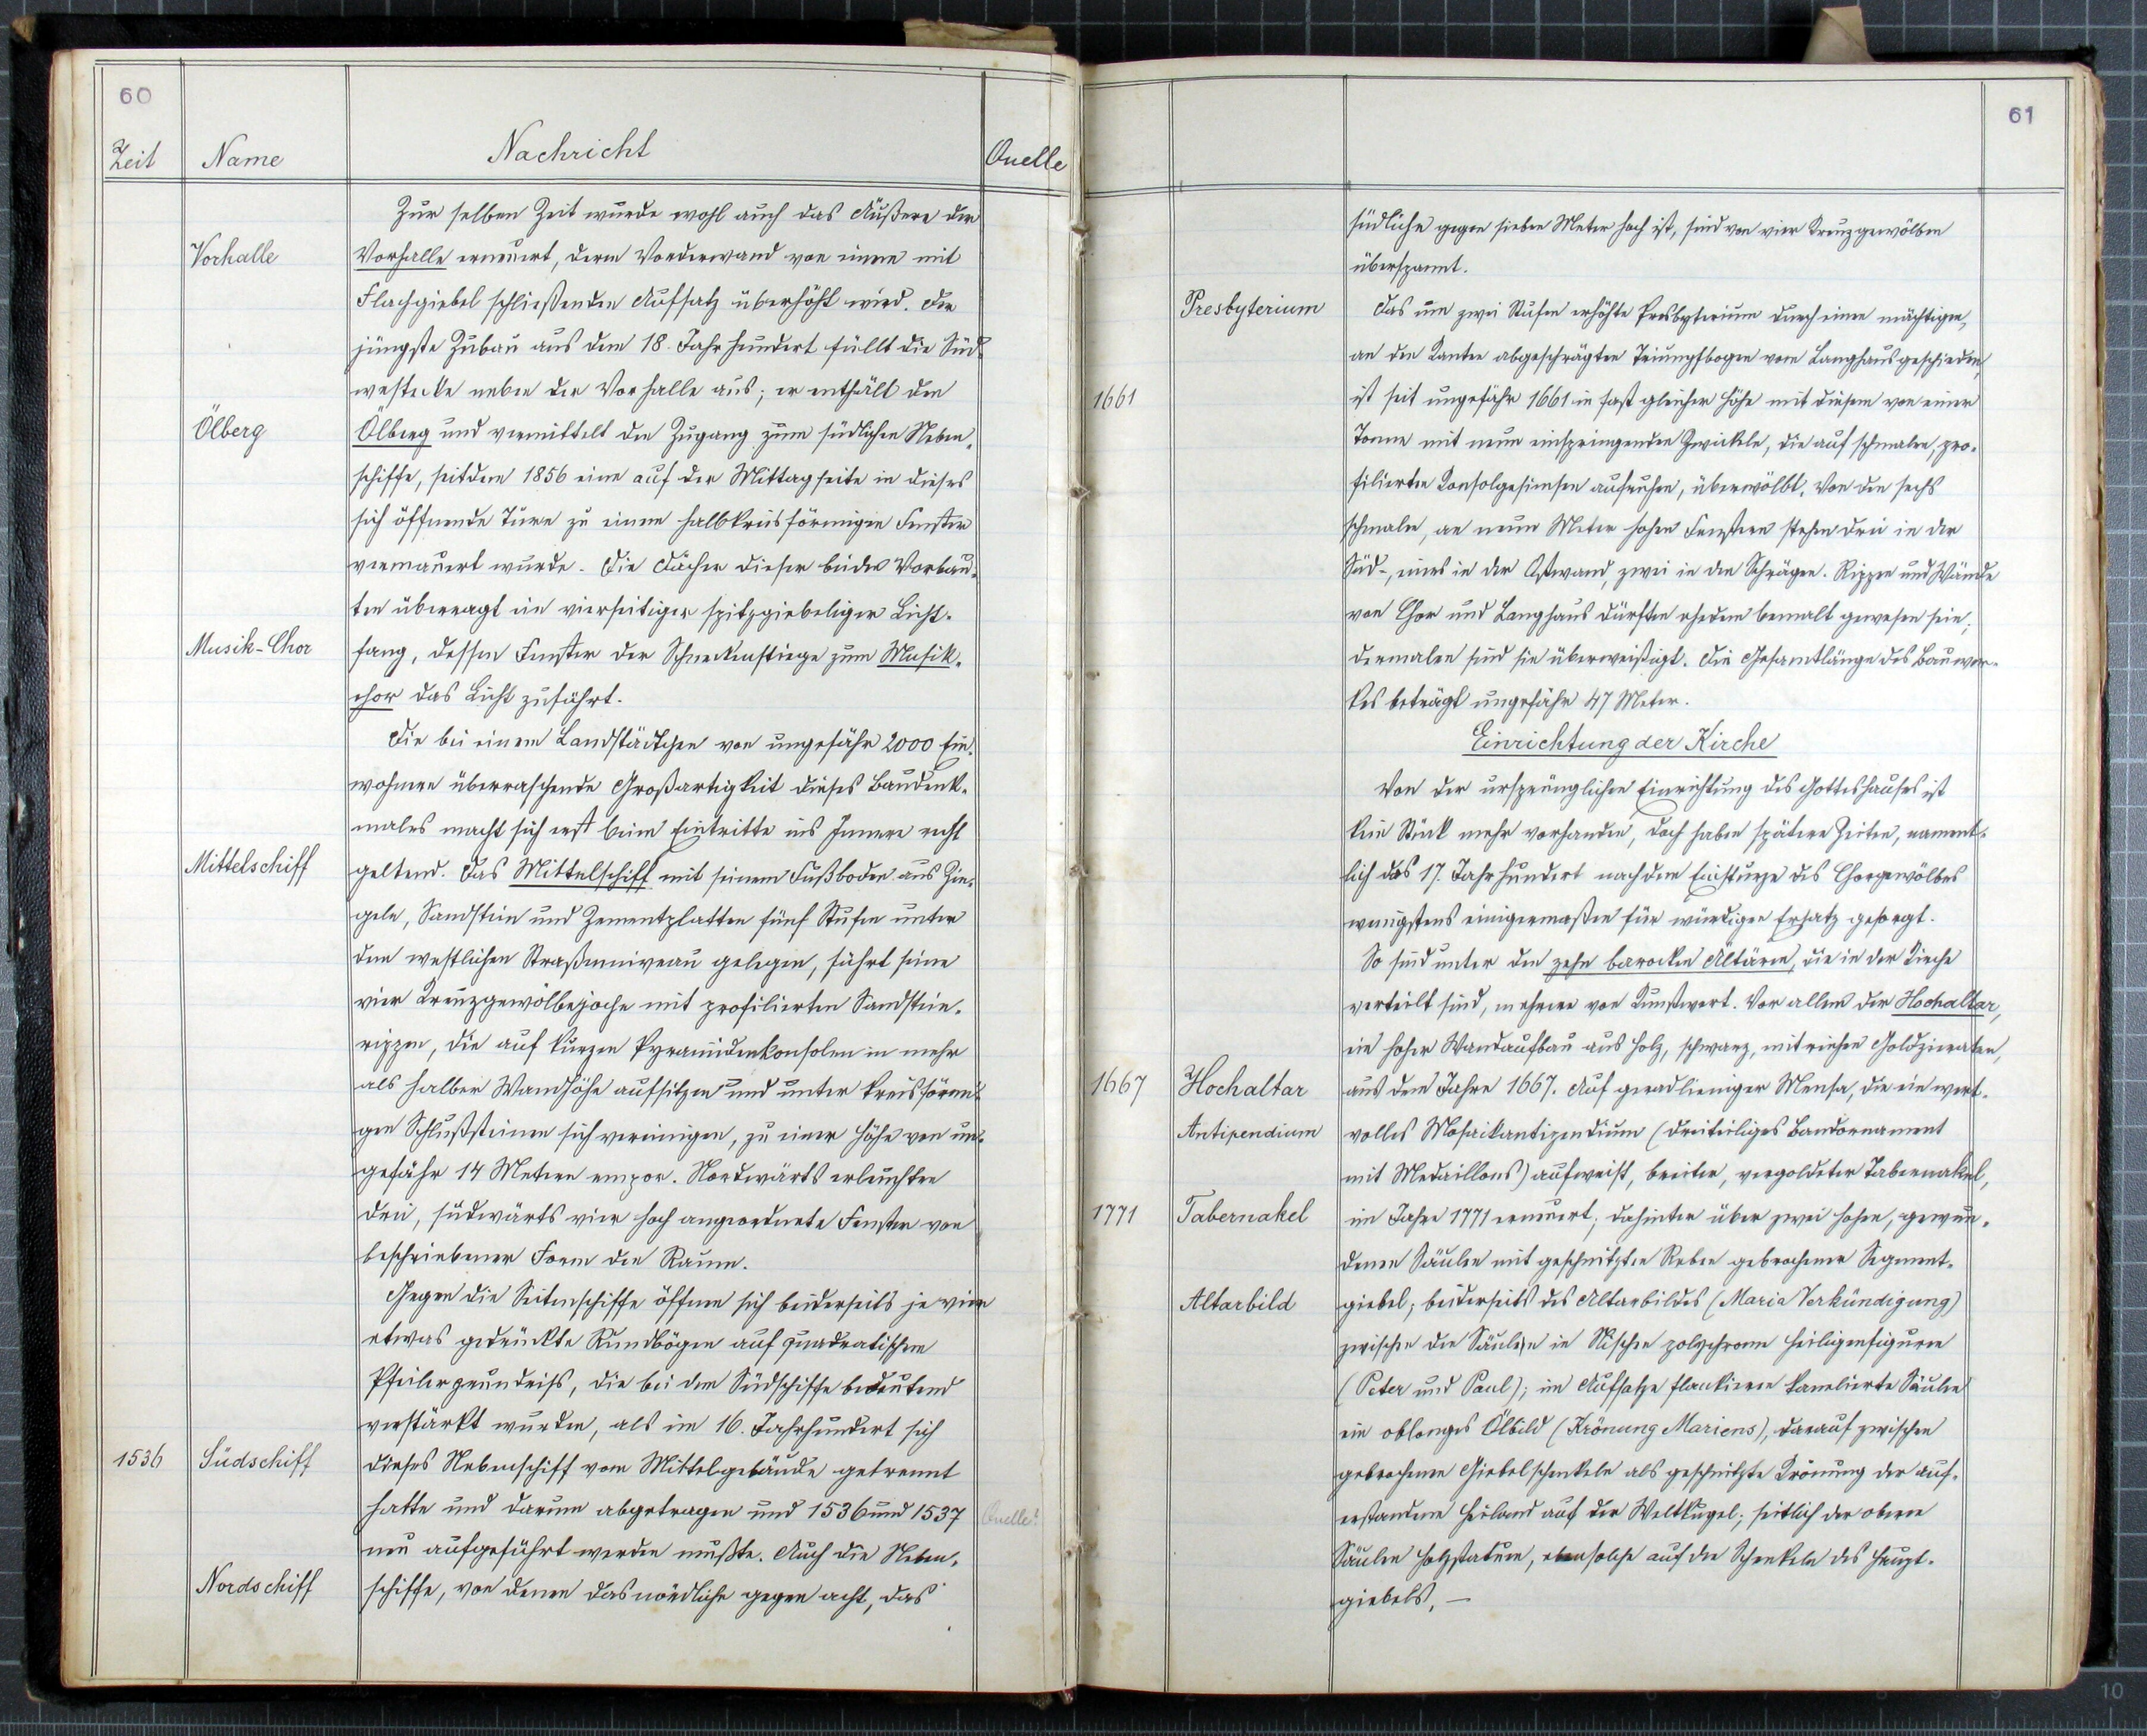 60
Zeit Name Nachricht Quelle
Zur selben Zeit wurde wohl auch das Äußere der
Vorhalle Vorhalle erneuert, deren Vorderwand von einem mit
Flachgiebel schließenden Aufsatz überhöht wird. Der
jüngste Zubau aus dem 18. Jahrhundert füllt die Süd-
westecke neben der Vorhalle aus; er enthält den
Ölberg Ölberg und vermittelt den Zugang zum südlichen Neben-
schiffe, seitdem 1856 eine auf der Mittagseite in dieses
sich öffnende Türe zu einem halbkreisförmigen Fenster
vermauert wurde. Die Dächer dieser beiden Vorbau-
ten überragt ein vierseitiger spitzgiebeliger Licht-
Musik-Chor fang, dessen Fenster der Schneckenstiege zum Musik-
chor das Licht zuführt.
Die bei einem Landstädtchen von ungefähr 2000 Ein-
wohnern überraschende Großartigkeit dieses Baudenk-
males macht sich erst beim Eintritte ins Innere recht
Mittelschiff geltend. Das Mittelschiff mit seinem Fußboden aus Zie-
geln, Sandstein und Zementplatten fünf Stufen unter
dem westlichen Straßenniveau gelegen, führt seine
vier Kreuzgewölbejoche mit profilierten Sandstein-
rippen, die auf kurzen Pyramidenkonsolen in mehr
als halber Wandhöhe aufsitzen und unter kreisförmi-
gen Schlußsteinen sich vereinigen, zu einer Höhe von un-
gefähr 14 Metern empor. Nordwärts erleuchten
drei, südwärts vier hoch angeordnete Fenster von
beschriebener Form den Raum.
Gegen die Seitenschiffe öffnen sich beiderseits je vier
etwas gedrückte Rundbögen auf quadratischem
Pfeilergrundriß, die bei dem Südschiffe bedeutend
verstärkt wurden, als im 16. Jahrhundert sich
1536 Südschiff dieses Nebenschiff vom Mittelgebäude getrennt
hatte und darum abgetragen und 1536 und 1537 Quelle?
neu aufgeführt werden mußte. Auch die Neben-
Nordschiff schiffe, von denen das nördliche gegen acht, das
61
südliche gegen sieben Meter hoch ist, sind von vier Kreuzgewölben
überspannt.
Presbyterium Das um zwei Stufen erhöhte Presbyterium durch einen mächtigen,
an den Kanten abgeschrägten Triumpfbogen vom Langhaus geschieden,
1661 ist seit ungefähr 1661 in fast gleicher Höhe mit diesem von einer
Tonne mit neun einspringenden Zwickeln, die auf schmalen, pro-
filierten Konsolgesimsen aufruhen, überwölbt. Von den sechs
schmalen, an neun Meter hohen Fenstern stehen drei in der
Süd-, eines in der Ostwand, zwei in den Schrägen. Rippen und Wände
von Chor und Langhaus dürften ehedem bemalt gewesen sein;
dermalen sind sie überweißigt. Die Gesamtlänge des Bauwer-
kes beträgt ungefähr 47 Meter.
Einrichtung der Kirche
Von der ursprünglichen Einrichtung des Gotteshauses ist
kein Stück mehr vorhanden, doch haben spätere Zeiten, nament-
lich das 17. Jahrhundert nach dem Einsturze des Chorgewölbes
wenigstens einigermaßen für würdigen Ersatz gesorgt.
So sind unter den zehn barocken Altären, die in der Kirche
verteilt sind, mehrere von Kunstwert. Vor allem der Hochaltar,
ein hoher Wandaufbau aus Holz, schwarz, mit reichen Goldzieraten,
1667 Hochaltar aus dem Jahre 1667. Auf geradliniger Mensa, die ein wert-
Antipendium volles Mosaikantipendium (dreiteiliges Bandornament
mit Medaillons) aufweist, breiter, vergoldeter Tabernakel,
1771 Tabernakel im Jahre 1771 erneuert; dahinter über zwei hohen, gewun-
denen Säulen mit geschnitzten Reben gebrochener Segment-
Altarbild giebel; beiderseits des Altarbildes (Maria Verkündigung)
zwischen den Säulen in Nischen polychrome Heiligenfiguren
(Peter und Paul); im Aufsatze flankieren kannelierte Säulen
ein oblonges Ölbild (Krönung Mariens), darauf zwischen
gebrochenen Giebelschenkeln als geschnitzte Krönung der auf-
erstandene Heiland auf der Weltkugel; seitlich der oberen
Säulen Holzstatuen, ebensolche auf den Schenkeln des Haupt-
giebels. —